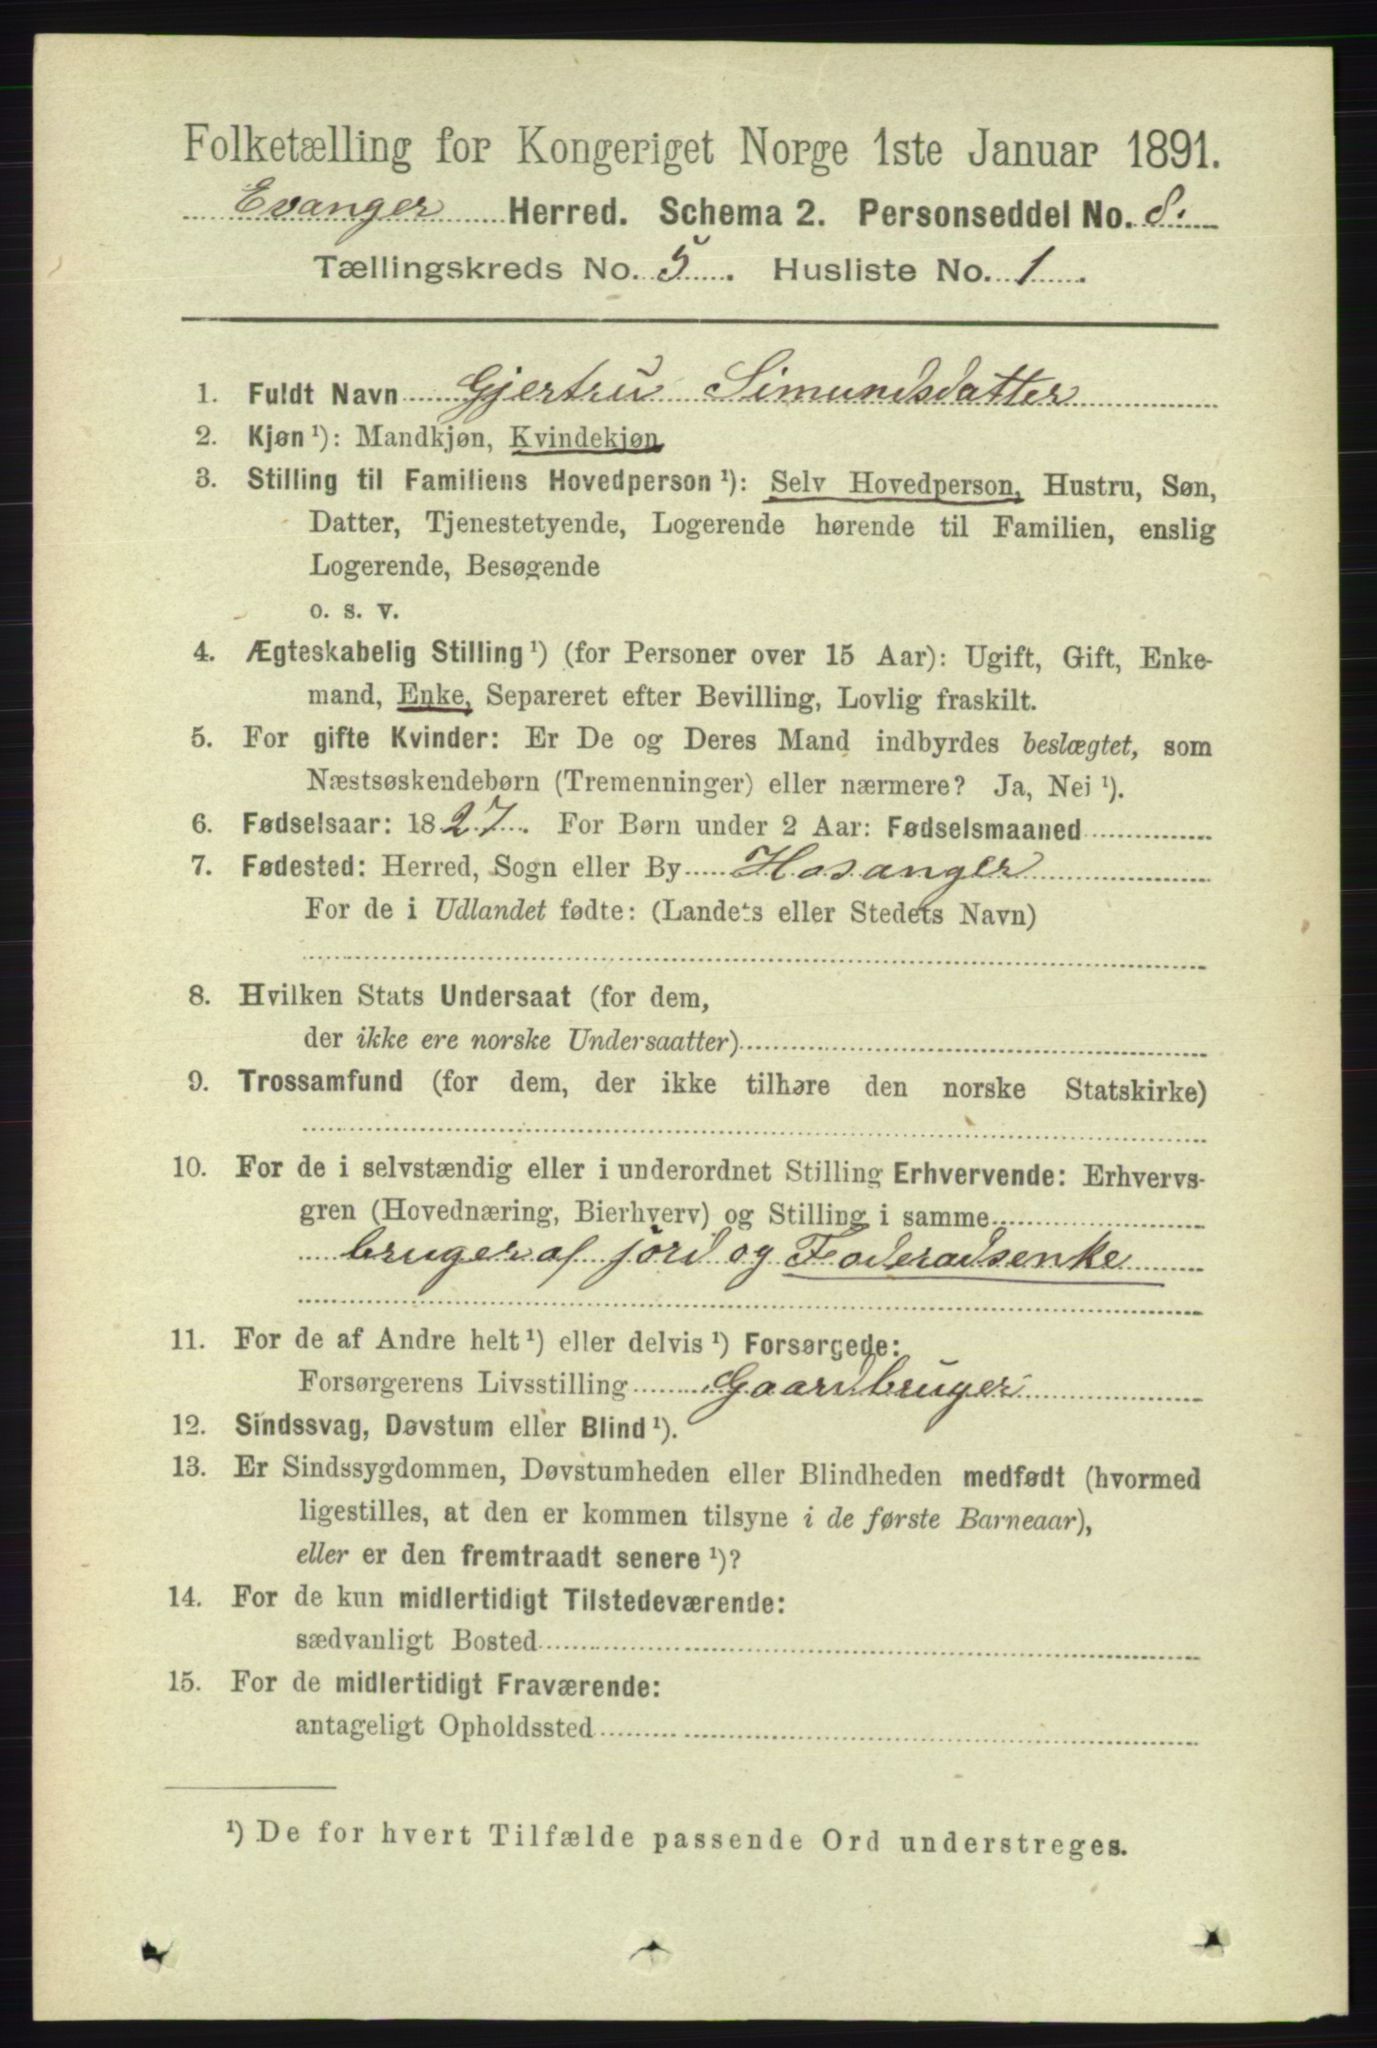 Folketælling for Kongeriget Norge 1ste Januar 1891.
Evanger Herred. Schema 2. Personseddel No. 8.
Tællingskreds No. 5. Husliste No. 1.
1. Fuldt Navn Gjertru Simundsdatter
2. Kjøn ¹): Mandkjøn, Kvindekjøn
3. Stilling til Familiens Hovedperson ¹): Selv Hovedperson, Hustru, Søn,
Datter, Tjenestetyende, Logerende hørende til Familien, enslig
Logerende, Besøgende
o. s. v.
4. Ægteskabelig Stilling ¹) (for Personer over 15 Aar): Ugift, Gift, Enke-
mand, Enke, Separeret efter Bevilling, Lovlig fraskilt.
5. For gifte Kvinder: Er De og Deres Mand indbyrdes beslægtet, som
Næstsøskendebørn (Tremenninger) eller nærmere? Ja, Nei ¹).
6. Fødselsaar: 1827. For Børn under 2 Aar: Fødselsmaaned
7. Fødested: Herred, Sogn eller By Hosanger
For de i Udlandet fødte: (Landets eller Stedets Navn)
8. Hvilken Stats Undersaat (for dem,
der ikke ere norske Undersaatter)
9. Trossamfund (for dem, der ikke tilhøre den norske Statskirke)
10. For de i selvstændig eller i underordnet Stilling Erhvervende: Erhvervs-
gren (Hovednæring, Bierhverv) og Stilling i samme
bruger af jord og Foderadsenke
11. For de af Andre helt ¹) eller delvis ¹) Forsørgede:
Forsørgerens Livsstilling Gaardbruger
12. Sindssvag, Døvstum eller Blind ¹).
13. Er Sindssygdommen, Døvstumheden eller Blindheden medfødt (hvormed
ligestilles, at den er kommen tilsyne i de første Barneaar),
eller er den fremtraadt senere ¹)?
14. For de kun midlertidigt Tilstedeværende:
sædvanligt Bosted
15. For de midlertidigt Fraværende:
antageligt Opholdssted
¹) De for hvert Tilfælde passende Ord understreges.